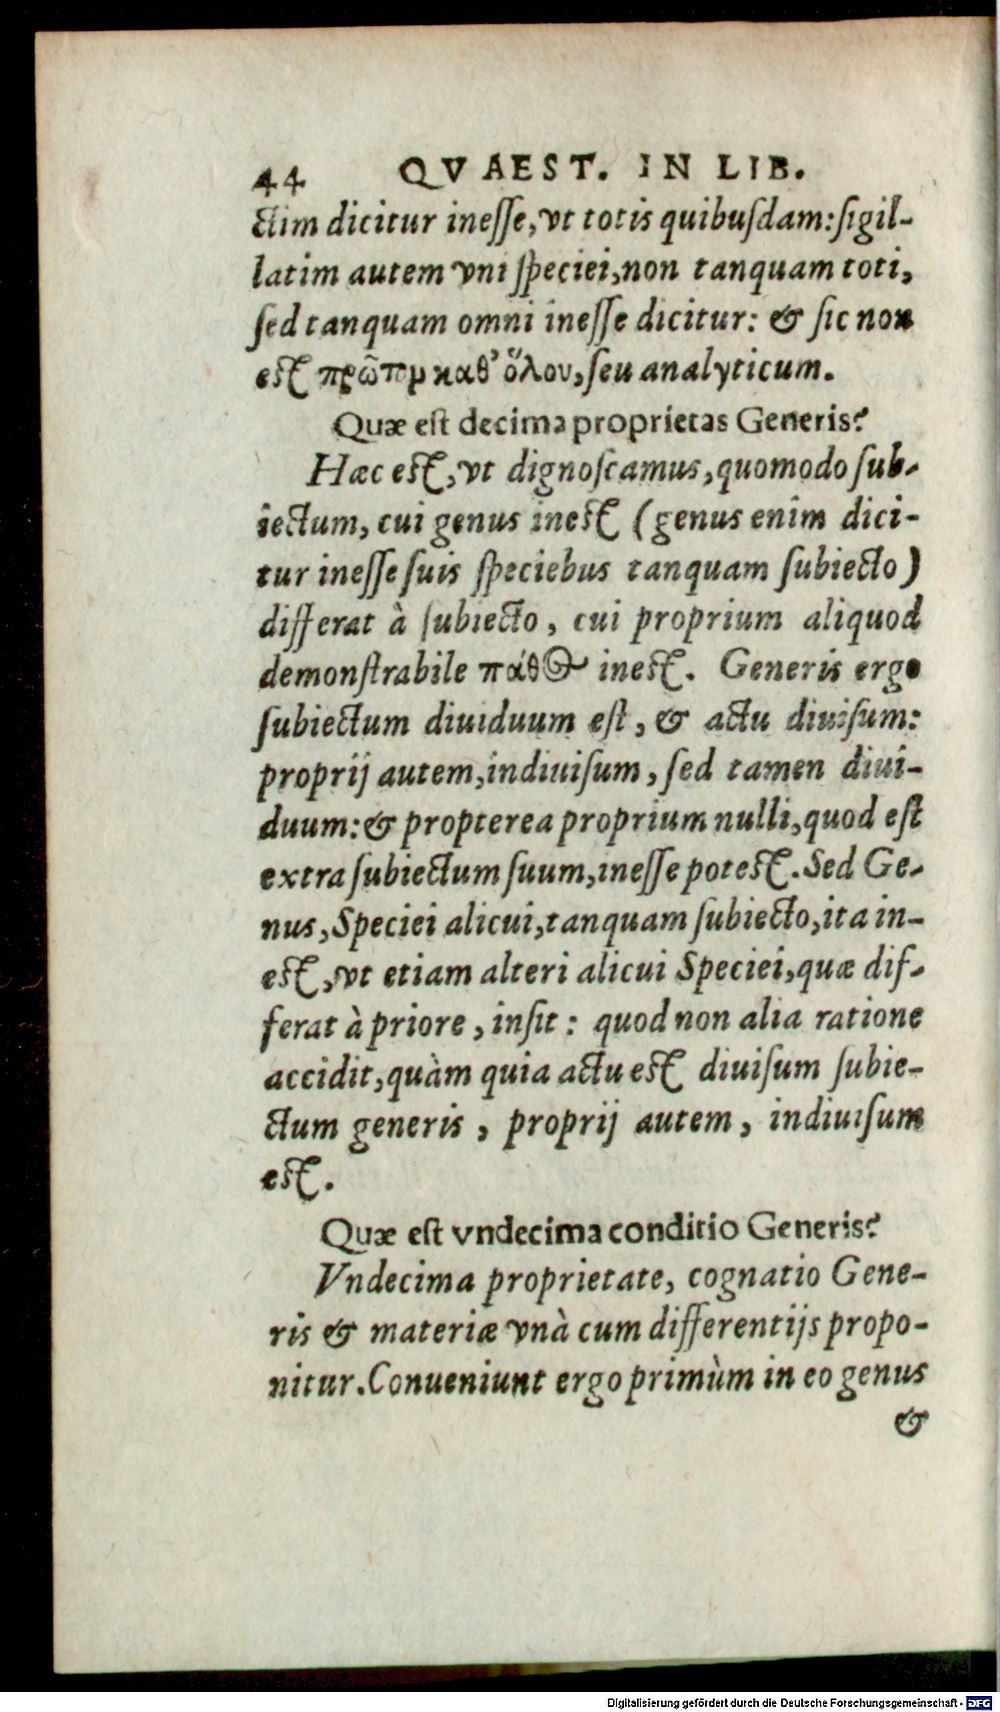 44 QVAEST. IN LIB.
ctim dicitur inesse, vt totis quibusdam: sigil-
latim autem vni speciei, non tanquam toti,
sed tanquam omni inesse dicitur: & sic non
est πρῶτον καθ’ ὅλου, seu analyticum.
Quæ est decima proprietas Generis?
Hæc est, vt dignoscamus, quomodo sub-
iectum, cui genus inest (genus enim dici-
tur inesse suis speciebus tanquam subiecto)
differat à subiecto, cui proprium aliquod
demonstrabile πάθος inest. Generis ergo
subiectum diuiduum est, & actu diuisum:
proprij autem, indiuisum, sed tamen diui-
duum: & propterea proprium nulli, quod est
extra subiectum suum, inesse potest. Sed Ge-
nus, Speciei alicui, tanquam subiecto, ita in-
est, vt etiam alteri alicui Speciei, quæ dif-
ferat à priore, insit: quod non alia ratione
accidit, quàm quia actu est diuisum subie-
ctum generis, proprij autem, indiuisum
est.
Quæ est vndecima conditio Generis?
Vndecima proprietate, cognatio Gene-
ris & materiæ vnà cum differentijs propo-
nitur. Conueniunt ergo primùm in eo genus
&
Digitalisierung gefördert durch die Deutsche Forschungsgemeinschaft - DFG